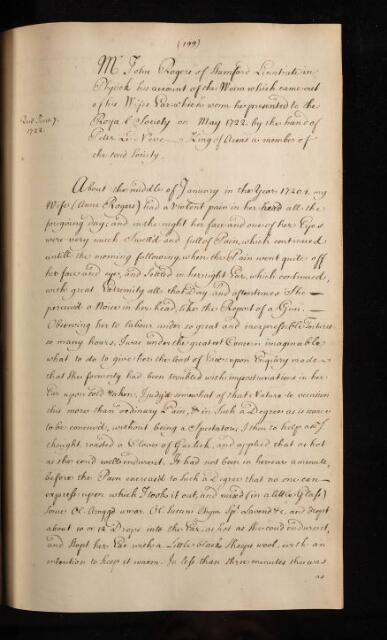 (199)
Mr. John Rogers of Stamford Licentiate in
Physick his account of the Worm which came out
of his Wifes Ear which worm he presented to the
Royal Society on May 1722. by the hand of
Peter Le Neve King of Arms a member of
the said Society.
Read June 7.
1722.
About the middle of January in the Year 1720. my
Wife (Anne Rogers) had a Violent pain in her head all the
foregoing day; and in the night her face and one of her Eyes
were very much Swell'd and full of Pain, which continued
untill the morning following, when the Pain went quite off
her face and eye, and Settled in her right Ear, which continued,
with great Extremity all that Day and oftentimes She
perceiv'd a Noise in her head, like the Report of a Gun.
Observing her to labour under so great and inexpressible Tortures
so many hours, I was under the greatest Concern imaginable
what to do to give her the least of Ease upon Enquiry made
that She formerly had been troubled with impostumations in her
Ear upon Cold taken, I judg'd somewhat of that Nature to occasion
this more than ordinary Pain, & in Such a Degree as is scarce
to be conceiv'd, without being a Spectator, I then to help as I
thought, roasted a Clove of Garlick, and applied that as hot
as She coud well endure it. It had not been in her ear a minute,
before the Pain encreas'd to Such a Degree that no one can
express upon which I took it out, and mixd (in a little Glass)
some Ol. Amygd. amar. Ol. Succini Spt. Lavend &c. and dropt
about 10 or 12 drops into the Ear, as hot as She coud endure it,
and Stopt her Ear with a Little black Sheeps wool, with an
intention to keep it warm. In less than three minutes She was
as